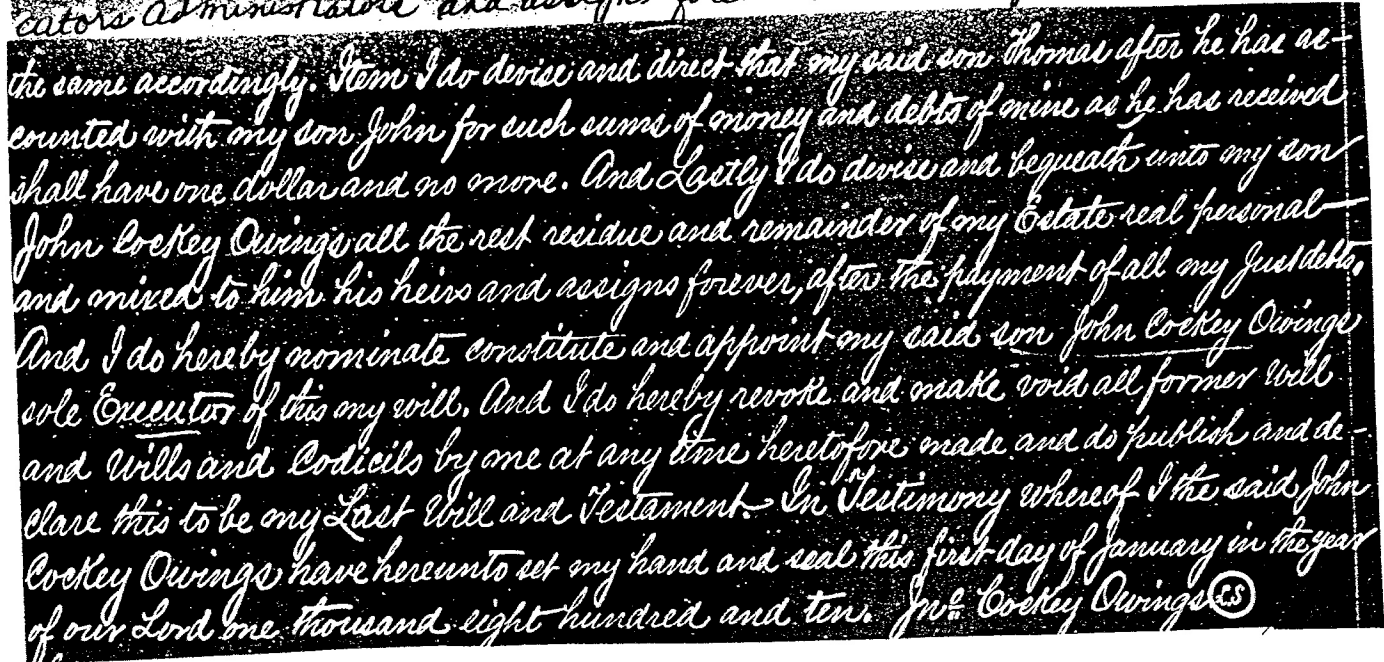 cators administrators and assigns
the same accordingly. Item I do devise and direct that my said son Thomas after he has ac-
counted with my son John for such sums of money and debts of mine as he has received
shall have one dollar and no more. And Lastly I do devise and bequeath unto my son
John Cockey Owings all the rest residue and remainder of my Estate real personal
and mixed to him his heirs and assigns forever, after the payment of all my Just debts.
And I do hereby nominate constitute and appoint my said son John Cockey Owings
sole Executor of this my will. And I do hereby revoke and make void all former Will
and Wills and Codicils by me at any time heretofore made and do publish and de-
clare this to be my Last Will and Testament. In Testimony whereof I the said John
Cockey Owings have hereunto set my hand and seal this first day of January in the year
of our Lord one thousand eight hundred and ten. Jno. Cockey Owings L.S